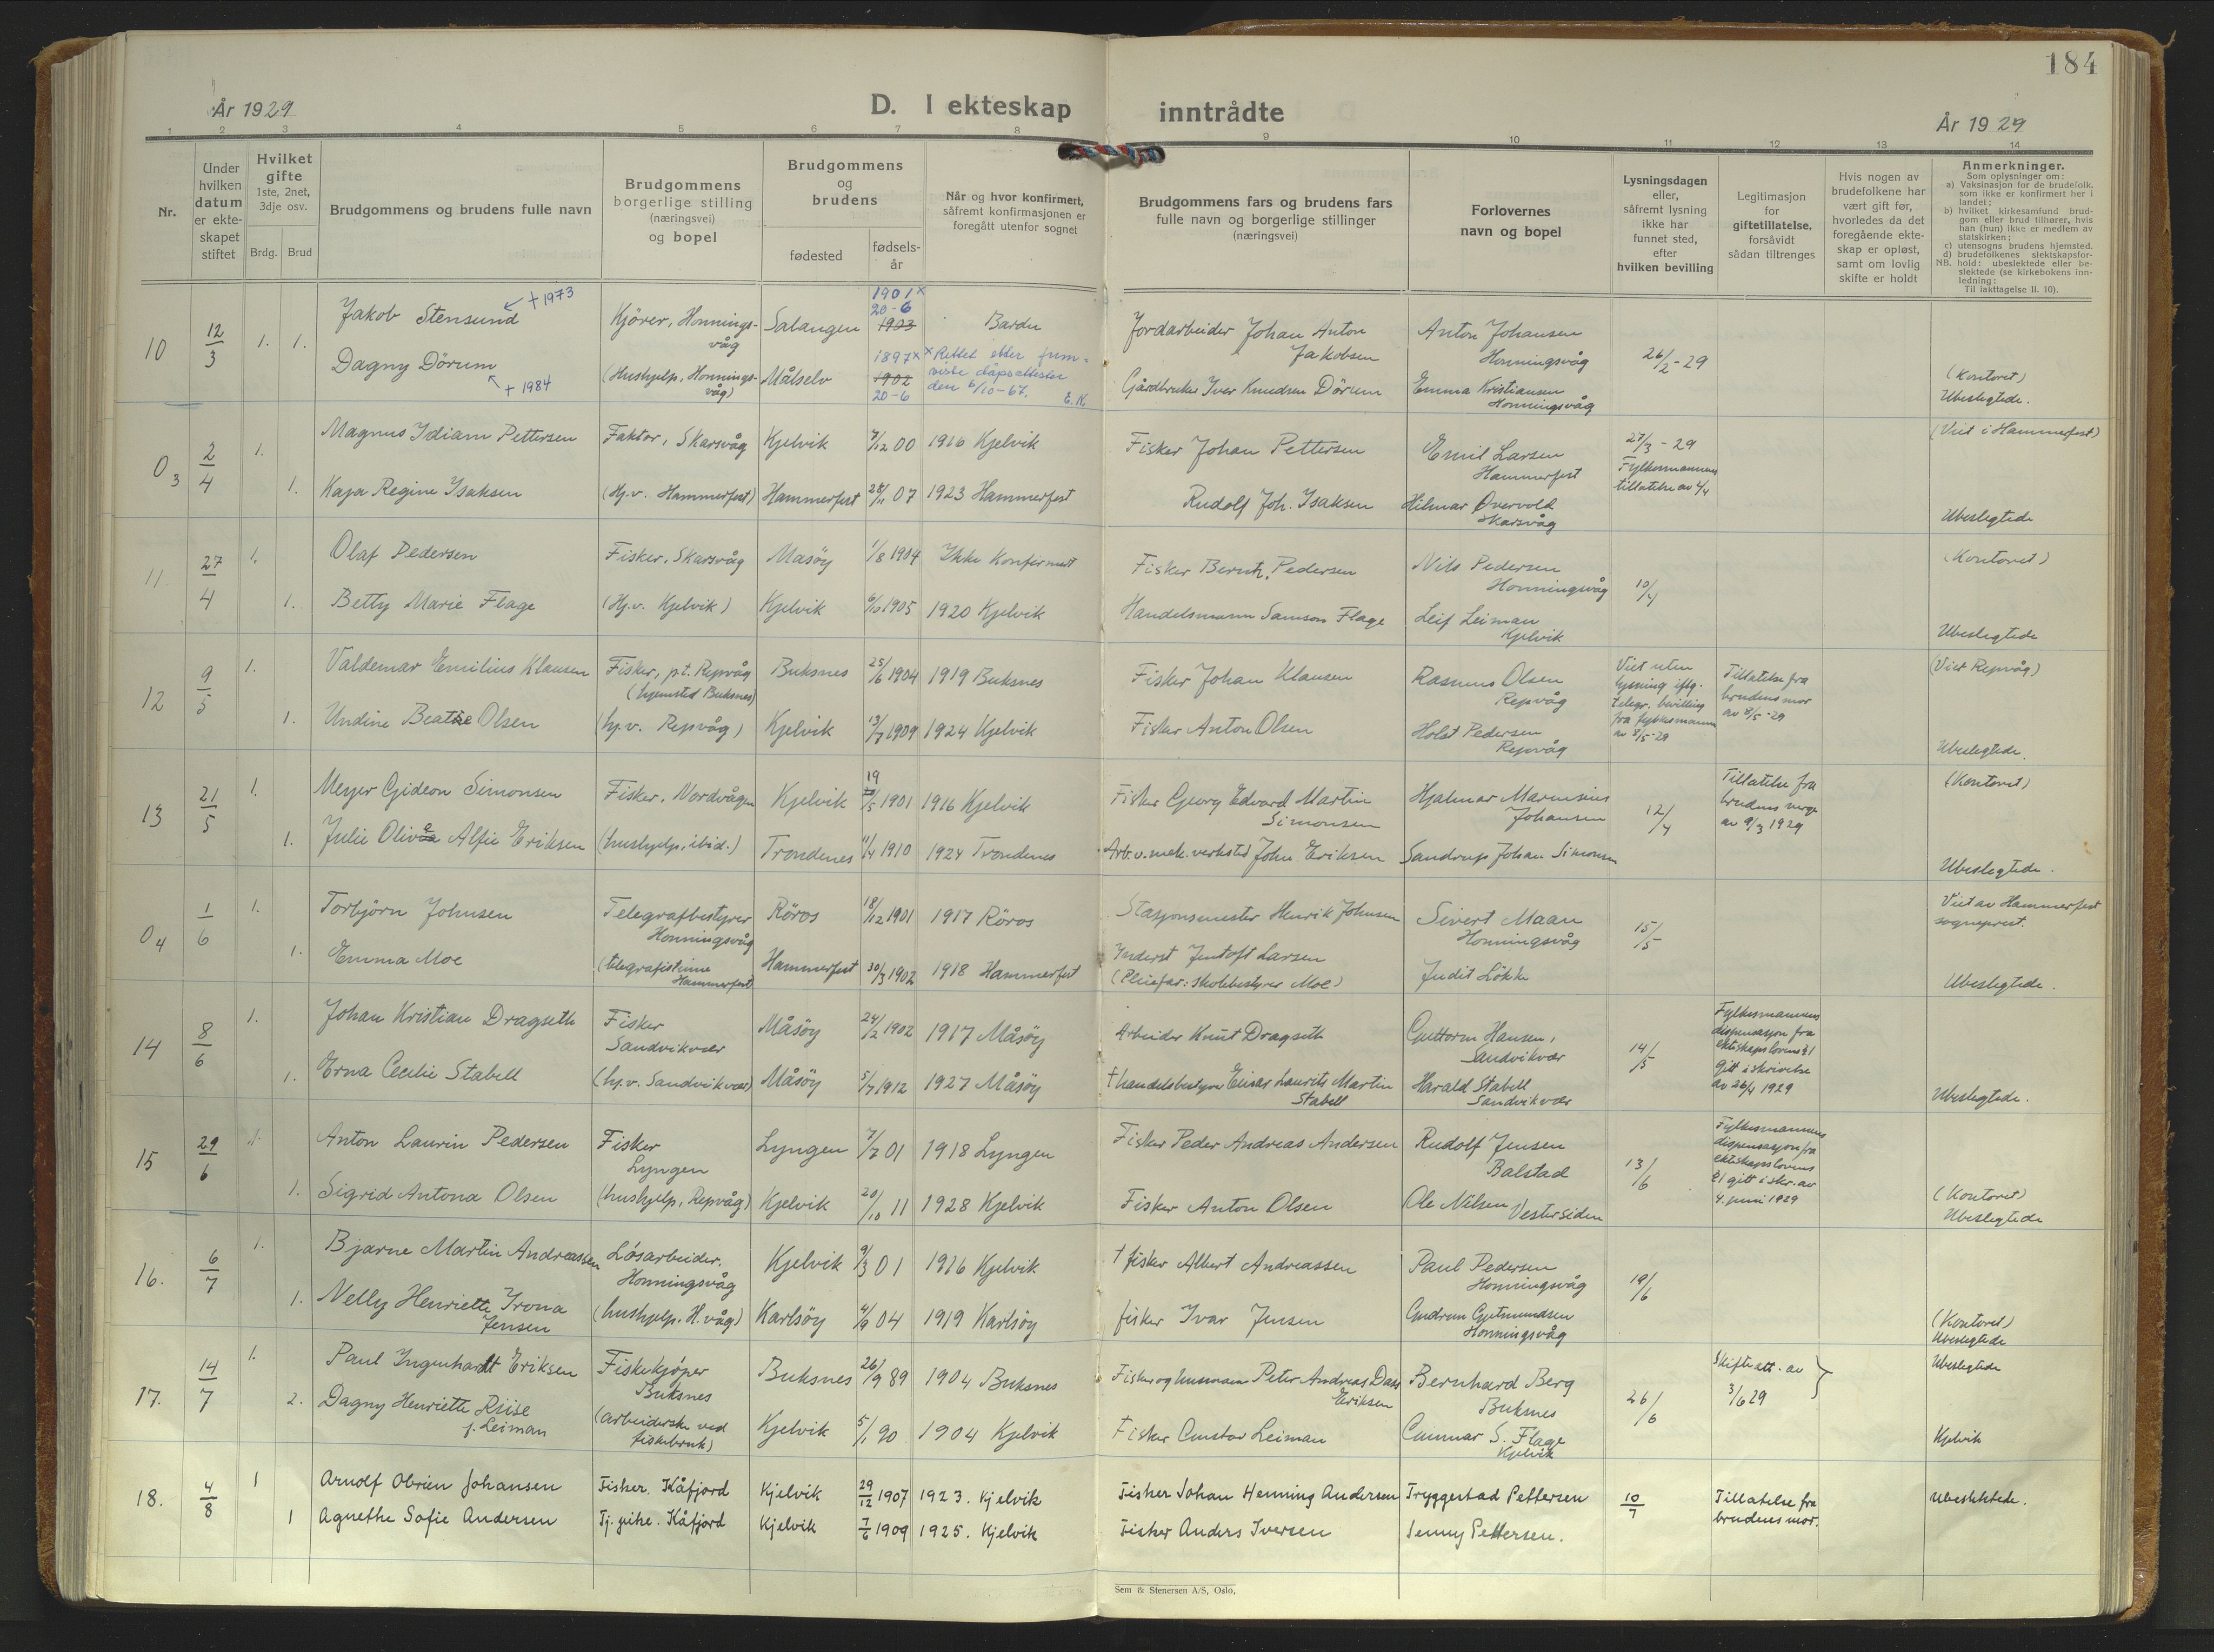 184
År 1929
D. I ekteskap inntrådte
År 1929
1 2 3 4 5 6 7 8 9 10 11 12 13 14
Nr.
Under hvilken datum er ekteskapet stiftet
Hvilket gifte
1ste, 2net, 3dje osv.
Brdg. Brud
Brudgommens og brudens fulle navn
Brudgommens borgerlige stilling (næringsvei) og bopel
Brudgommens og brudens
fødested
fødsels-år
Når og hvor konfirmert, såfremt konfirmasjonen er foregått utenfor sognet
Brudgommens fars og brudens fars fulle navn og borgerlige stillinger (næringsvei)
Forlovernes navn og bopel
Lysningsdagen eller, såfremt lysning ikke har funnet sted, efter hvilken bevilling
Legitimasjon for giftetillatelse, forsåvidt sådan tiltrenges
Hvis nogen av brudefolkene har vært gift før, hvorledes da det foregående ekteskap er opløst, samt om lovlig skifte er holdt
Anmerkninger.
Som oplysninger om:
a) Vaksinasjon for de brudefolk, som ikke er konfirmert her i landet;
b) hvilket kirkesamfund brudgom eller brud tilhører, hvis han (hun) ikke er medlem av statskirken;
c) utensogns brudens hjemsted.
d) brudefolkenes slektskapsforhold: ubeslektede eller beslektede (se kirkebokens innledning:
NB.
Til iakttagelse II. 10).
10 12/3 1. 1. Jakob Stensund † 1973 Kjörer, Honningsvåg Salangen 1901 x 20-6 1903 Bardu Jordarbeider Johan Anton Jakobsen Anton Johansen Honningsvåg 26/2-29
Dagny Dörum † 1984 (Hushjelp, Honningsvåg) Målselv 1897 x 1902 20-6 x Rettet etter fremviste dåpsattester den 6/10-67. E.K. Gårdbruker Iver Knudsen Dörum Emma Kristiansen Honningsvåg (Kontoret) Ubeslegtede.
03 2/4 1. Magnus Idiam Pettersen Faktor, Skarsvåg Kjelvik 7/12 00 1916 Kjelvik Fisker Johan Pettersen Emil Larsen Hammerfest 27/3-29 Fylkesmannens tillatelse av 2/4 (Viet i Hammerfest)
1. Kaja Regine Isaksen (Hj.v. Hammerfest) Hammerfest 28/11 07 1923 Hammerfest Rudolf Joh. Isaksen Hilmar Overvold Skarsvåg Ubeslegtede
11. 27/4 1. Olaf Pedersen Fisker, Skarsvåg Masöy 1/8 1904 Ikke konfirmert Fisker Bernh. Pedersen Nils Pedersen Honningsvåg 10/4 (Kontoret)
1. Betty Marie Flage (Hj.v. Kjelvik) Kjelvik 6/10 1905 1920 Kjelvik Handelsmann Samson Flage Leif Leiman Kjelvik Ubeslegtede
12 9/5 1. Valdemar Emilius Klausen Fisker, p.t. Repvåg (hjemsted Buksnes) Buksnes 25/6 1904 1919 Buksnes Fisker Johan Klausen Rasmus Olsen Repvåg Viet uten lysning iflg. telegr. bevilling fra fylkesmannen av 8/5-29 Tillatelse fra brudens mor av 8/5-29 (Viet Repvåg)
1. Undine Beathe Olsen (hj.v. Repvåg) Kjelvik 13/7 1909 1924 Kjelvik Fisker Anton Olsen Holst Pedersen Repvåg Ubeslegtede.
13 21/5 1. Meyer Gideon Simonsen Fisker, Nordvågen Kjelvik 19/5 1901 1916 Kjelvik Fisker Georg Edvard Martin Simonsen Hjalmar Marensius Johansen 12/4 Tillatelse fra brudens verge av 9/3 1929 (Kontoret)
1. Julie Olive Alfie Eriksen (hushjelp, ibid.) Trondenes 11/4 1910 1924 Trondenes Arb. v. mek. verksted John Eriksen Sandrup Johan Simonsen Ubeslegtede.
04 1/6 1. Torbjörn Johnsen Telegrafbestyrer Honningsvåg Röros 18/12 1901 1917 Röros Stasjonsmester Henrik Johnsen Sivert Maan Honningsvåg 15/5 Viet av Hammerfest sogneprest.
1. Emma Moe (telegrafistinne Hammerfest) Hammerfest 30/3 1902 1918 Hammerfest Inderst Jentoft Larsen (Pleiefar: skolebestyrer Moe) Judit Lökke Ubeslegtede.
14 8/6 1. Johan Kristian Dragseth Fisker Sandvikvær Måsöy 24/2 1902 1917 Måsöy Arbeider Knut Dragseth Guttorm Hansen, Sandvikvær 14/5 Fylkesmannens dispensasjon fra ekteskapslovens § 1 gitt i skrivelse av 26/4 1929
1. Erna Cecilie Stabell (hj.v. Sandvikvær) Måsöy 5/7 1912 1927 Måsöy † handelsbestyrer Einar Laurits Martin Stabell Harald Stabell Sandvikvær Ubeslegtede.
15 29/6 1. Anton Laurin Pedersen Fisker Lyngen Lyngen 7/7 01 1918 Lyngen Fisker Peder Andreas Andersen Rudolf Jensen Balstad 13/6 Fylkesmannens dispensasjon fra ekteskapslovens § 1 gitt i skr. av 4. juni 1929
1. Sigrid Antona Olsen (hushjelp, Repvåg) Kjelvik 20/10 11 1928 Kjelvik Fisker Anton Olsen Ole Nilsen Vestersiden (Kontoret) Ubeslegtede
16. 6/7 1. Bjarne Martin Andreassen Løsarbeider. Honningsvåg Kjelvik 9/3 01 1916 Kjelvik † fisker Albert Andreassen Paul Pedersen Honningsvåg 19/6
1. Nelly Henriette Irona Jensen (hushjelp. H.våg) Karlsöy 4/9 04 1919 Karlsöy fisker Ivar Jensen Gudrun Gjetmundsen Honningsvåg (Kontoret) Ubeslegtede
17. 14/7 1. Paul Ingenhardt Eriksen Fiskekjøper Buksnes Buksnes 26/9 89 1904 Buksnes Fisker og husmann Peter Andreas Dass Eriksen Bernhard Berg Buksnes 26/6 Skifteatt. av 3/6 29 } Ubeslegtede
2. Dagny Henriette Riise f. Leiman (arbeiderske ved fiskebruk) Kjelvik 5/1 90 1904 Kjelvik † Fisker Gustav Leiman Gunnar S. Flage Kjelvik Kjelvik
18. 4/8 1 Arnolf Obrien Johansen Fisker. Kåfjord Kjelvik 29/12 1907 1923. Kjelvik Fisker Johan Henning Andersen Tryggestad Pettersen 10/7 Tillatelse fra brudens mor. Ubeslektede.
1 Agnethe Sofie Andersen Tj. pike. Kåfjord Kjelvik 7/6 1909 1925. Kjelvik Fisker Anders Iversen Jenny Pettersen.
Sem & Stenersen A/S, Oslo.